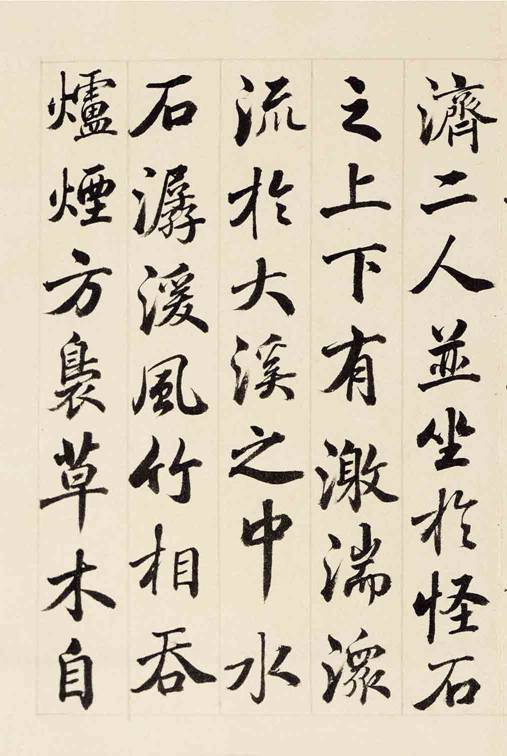 濟二人並坐於怪石
之上下有激湍潀
流於大溪之中水
石潺湲風竹相吞
爐煙方裊草木自